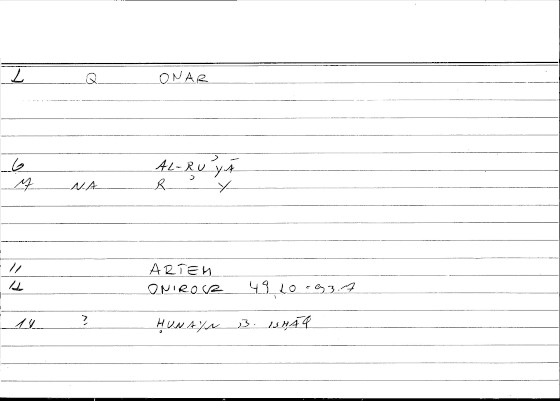 1 Q ONAR
6 AL-RUʾYĀ
M NA R ʾ Y
11 ARTEM
12 ONIROCR 49,20 - 93.1
14 ? ḤUNAYN B. ISḤĀQ